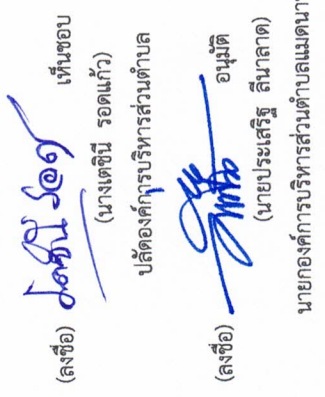 (ลงชื่อ) เตชินี รอด เห็นชอบ
(นางเตชินี รอดแก้ว)
ปลัดองค์การบริหารส่วนตำบล
(ลงชื่อ) อนุมัติ
(นายประเสริฐ ลีนาลาด)
นายกองค์การบริหารส่วนตำบลแมดนา